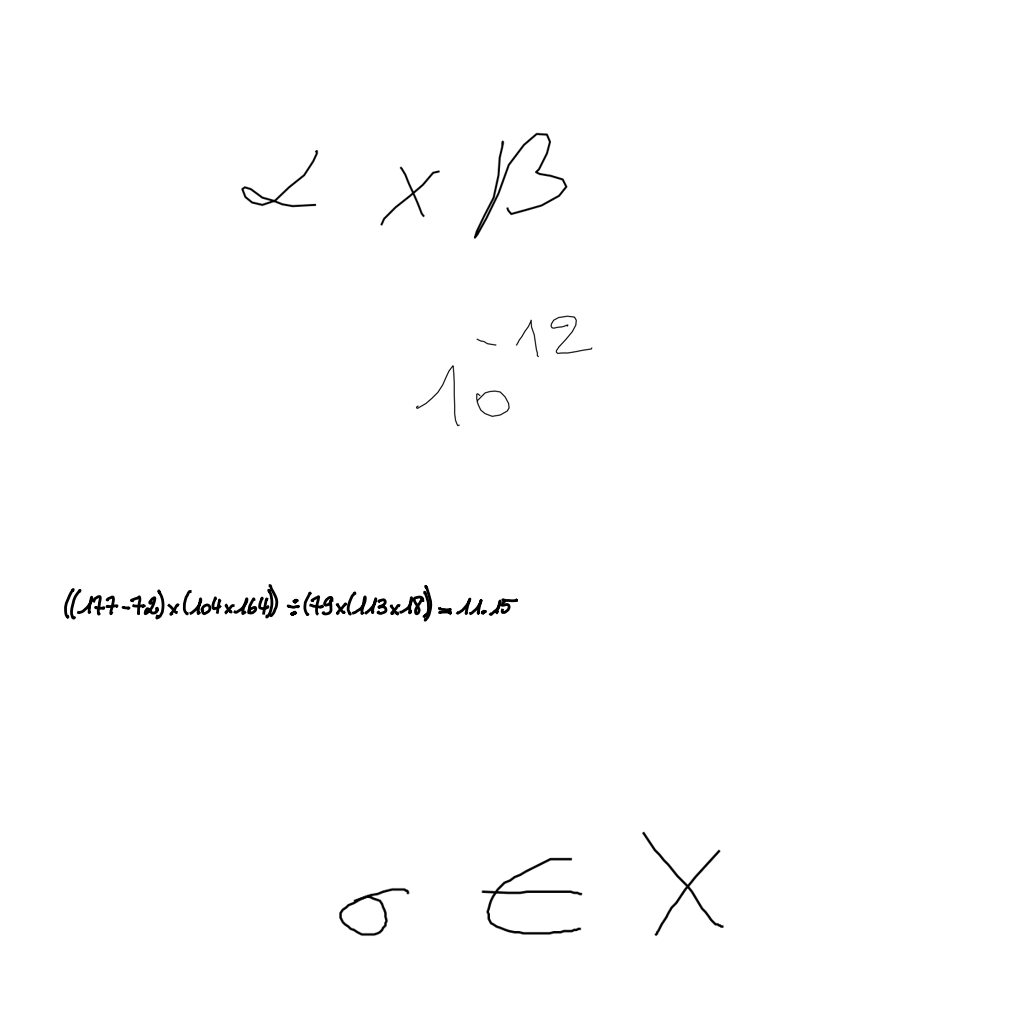 α × β
10^{-12}
((177-72)×(104×164))÷(79×(113×18))=11.15
σ ∈ X